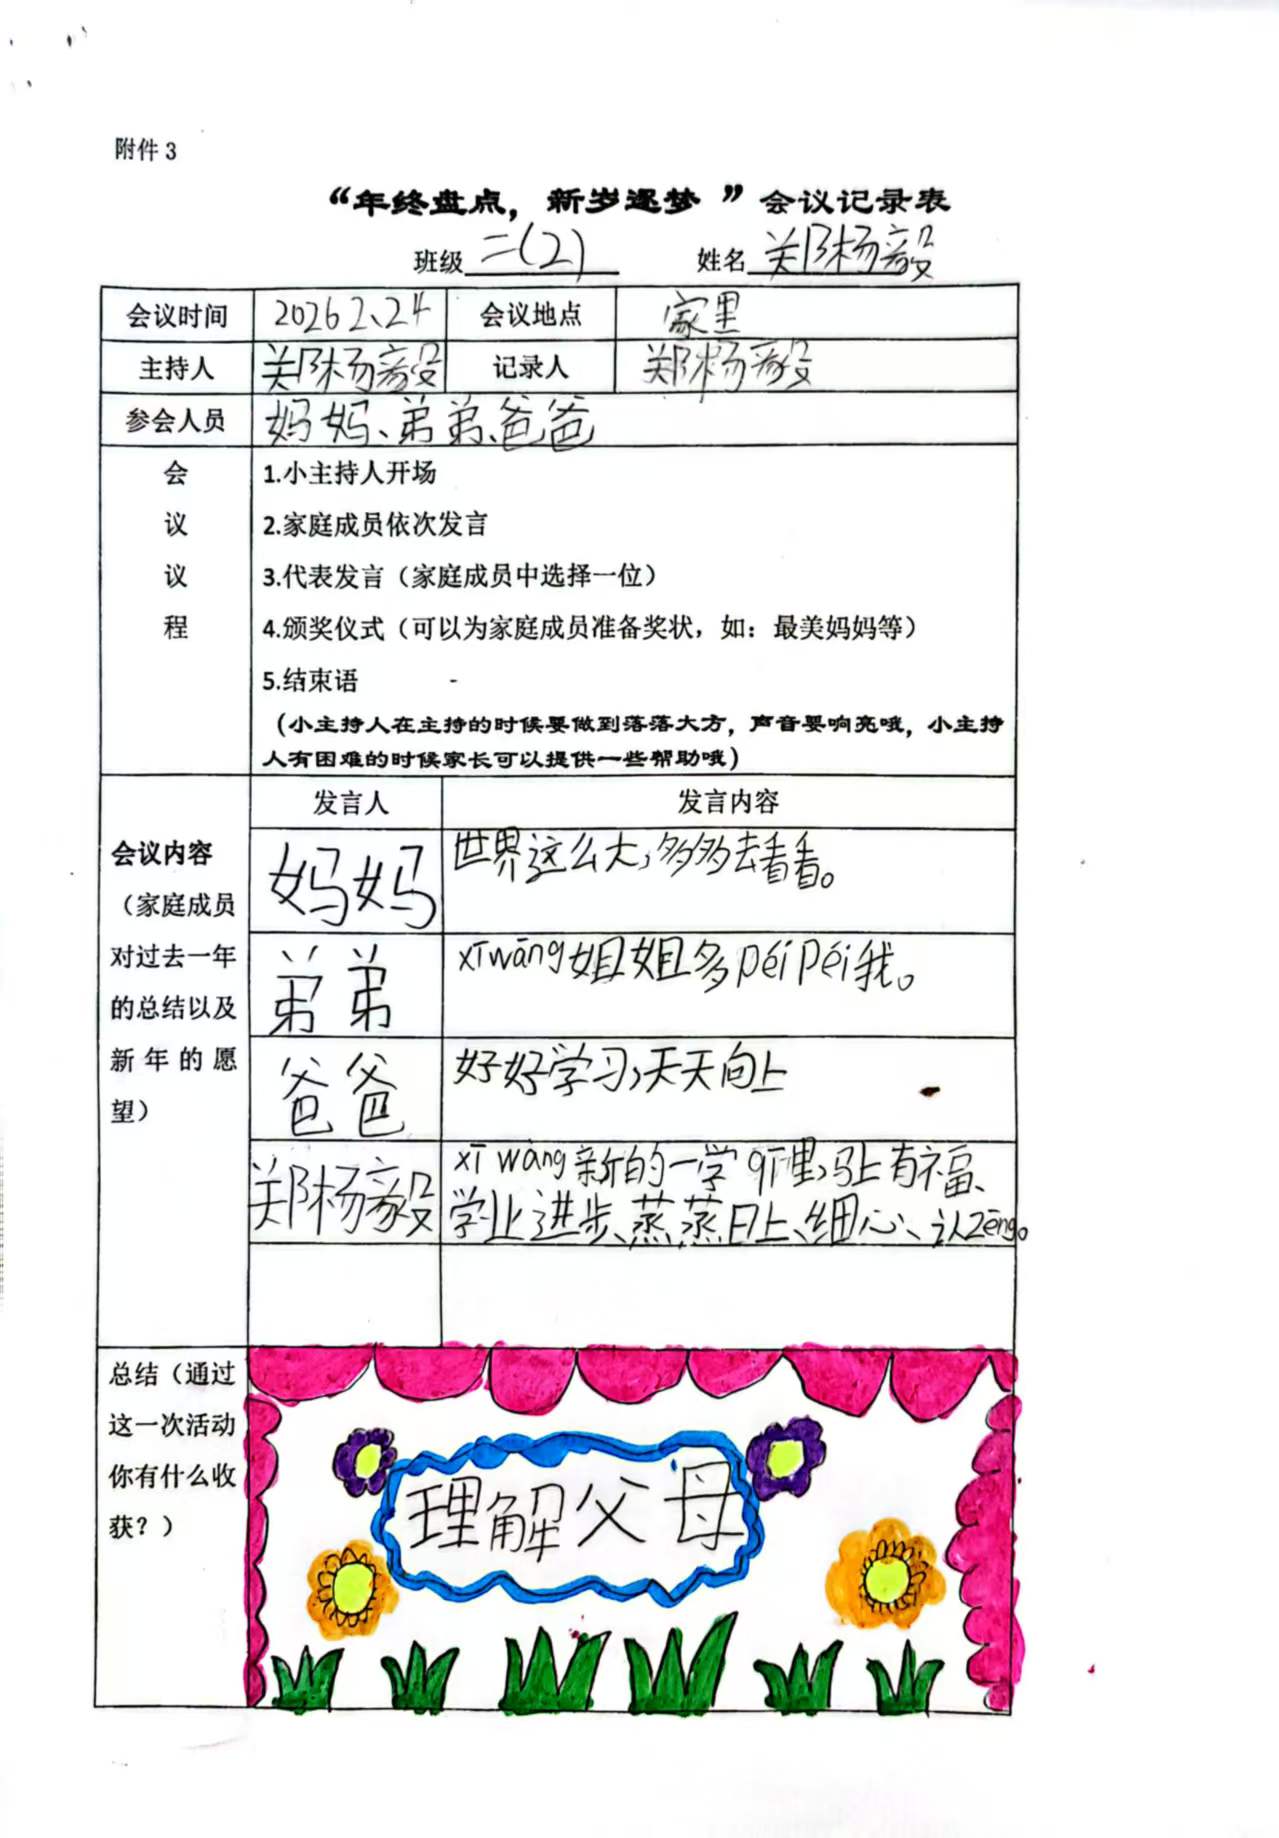 附件 3
“年终盘点，新岁逐梦 ”会议记录表
班级 二(2) 姓名 郑杨毅
会议时间 2026 2、24 会议地点 家里
主持人 郑杨毅 记录人 郑杨毅
参会人员 妈妈、弟弟、爸爸
会 1.小主持人开场
议 2.家庭成员依次发言
议 3.代表发言（家庭成员中选择一位）
程 4.颁奖仪式（可以为家庭成员准备奖状，如：最美妈妈等）
5.结束语
（小主持人在主持的时候要做到落落大方，声音要响亮哦，小主持
人有困难的时候家长可以提供一些帮助哦）
发言人 发言内容
会议内容
（家庭成员
对过去一年
的总结以及
新年的愿
望）
妈妈 世界这么大，多多去看看。
弟弟 xīwàng姐姐多péi péi我。
爸爸 好好学习，天天向上
郑杨毅 xī wàng新的一学qī里，马上有福、
学业进步、蒸蒸日上、细心、认zēng。
总结（通过
这一次活动
你有什么收
获？）
理解父母